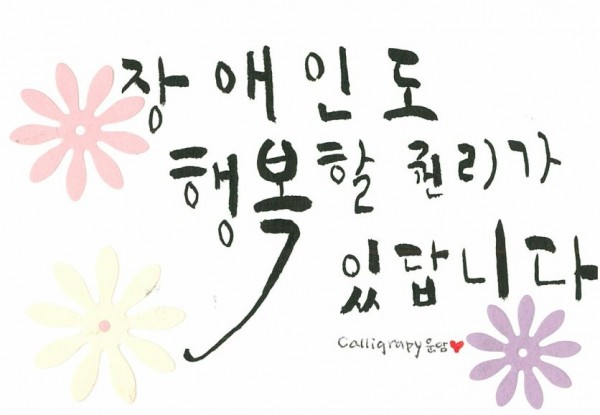 장애인도
행복할 권리가
있답니다
Calligrapy 윤담